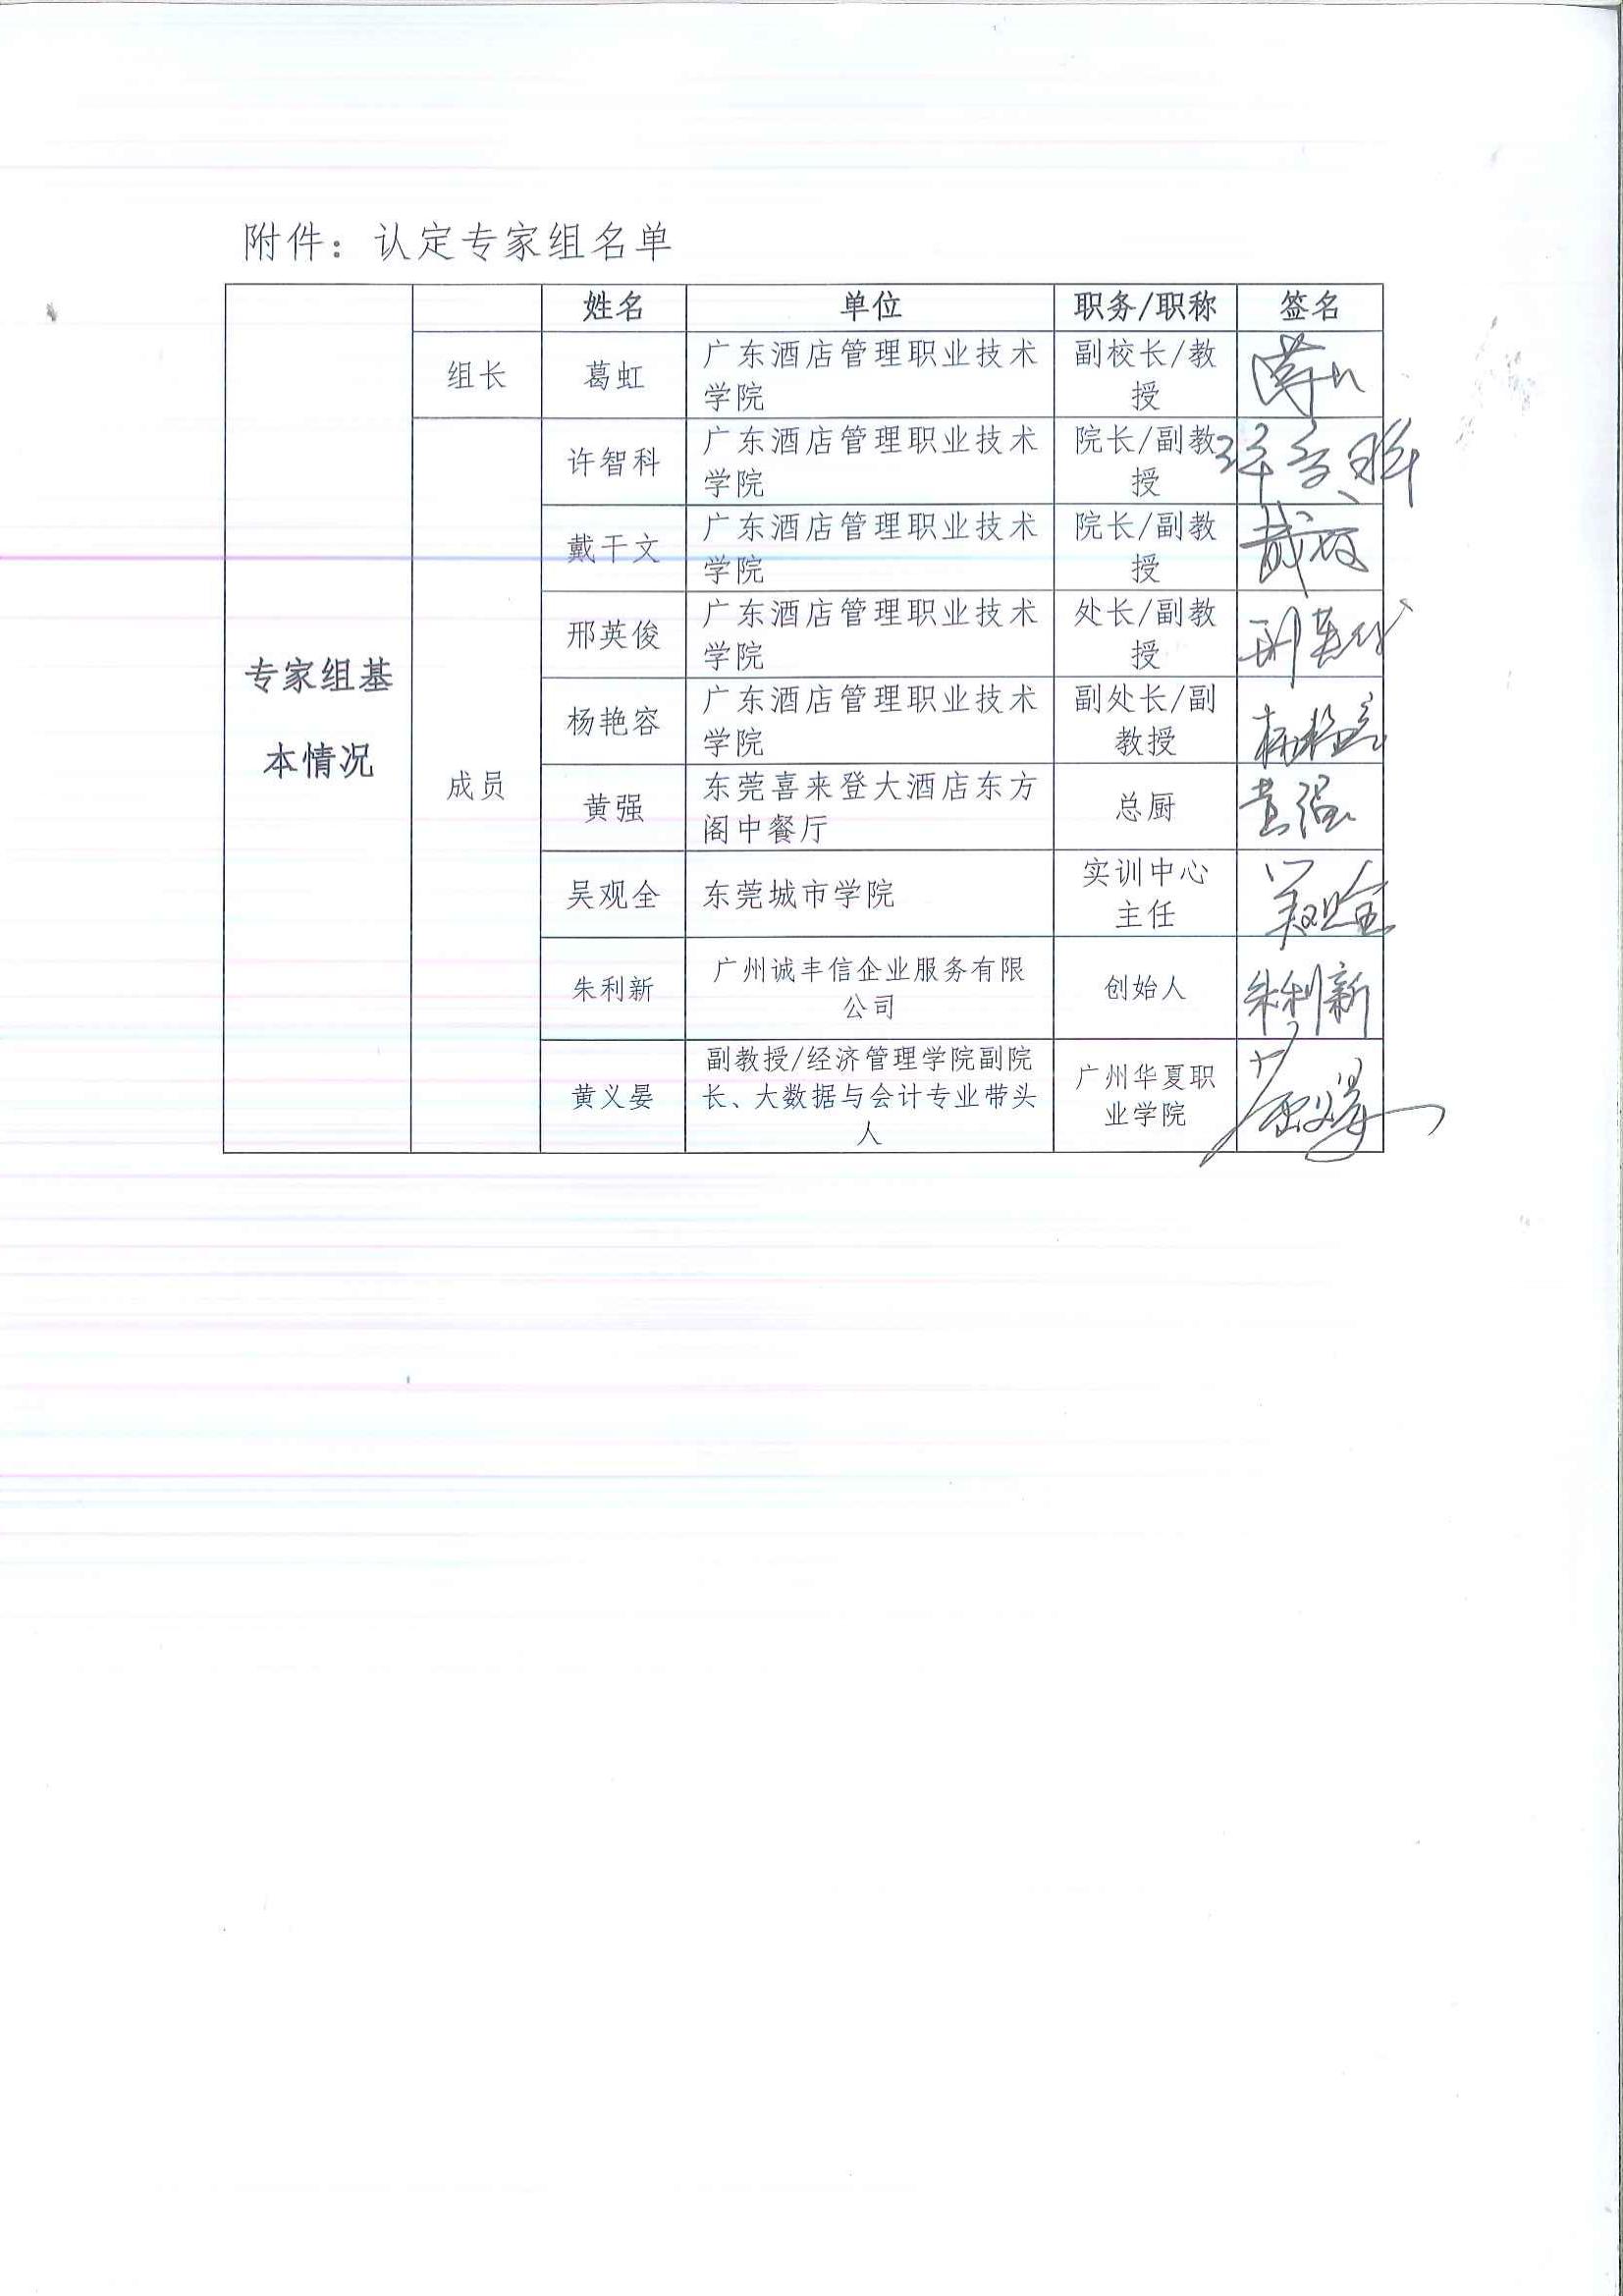 附件：认定专家组名单
姓名 单位 职务/职称 签名
专家组基
本情况
组长 葛虹 广东酒店管理职业技术
学院 副校长/教
授
成员
许智科 广东酒店管理职业技术
学院 院长/副教
授
戴干文 广东酒店管理职业技术
学院 院长/副教
授
邢英俊 广东酒店管理职业技术
学院 处长/副教
授 邢英俊
杨艳容 广东酒店管理职业技术
学院 副处长/副
教授
黄强 东莞喜来登大酒店东方
阁中餐厅 总厨 黄强
吴观全 东莞城市学院 实训中心
主任 吴观全
朱利新 广州诚丰信企业服务有限
公司 创始人 朱利新
黄义晏 副教授/经济管理学院副院
长、大数据与会计专业带头
人 广州华夏职
业学院